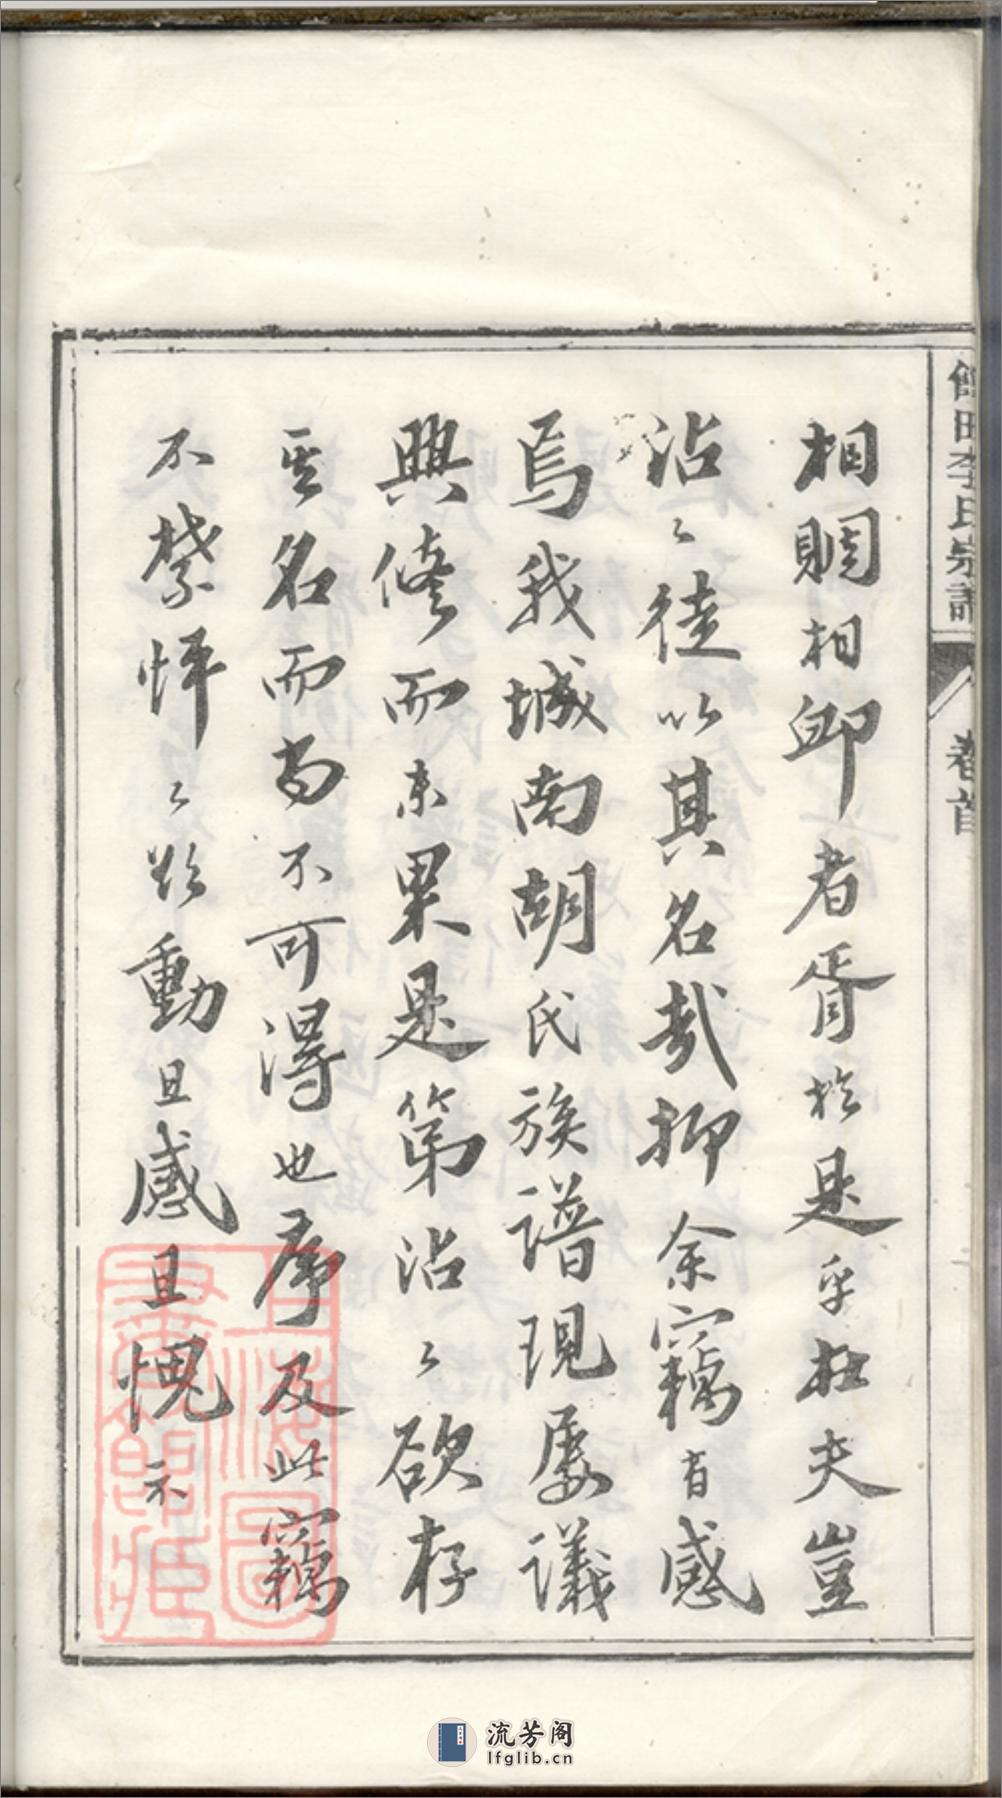 相賙相卹者胥於是乎在夫豈
沾〻徒以其名哉抑余竊有感
焉我城南胡氏族譜現屡議
興修而未果是第沾〻欲存
其名而尚不可得也序及此竊
不禁怦〻欲動且感且愧不
李氏宗譜
卷首
上海圖書館藏
流芳阁
lfglib.cn